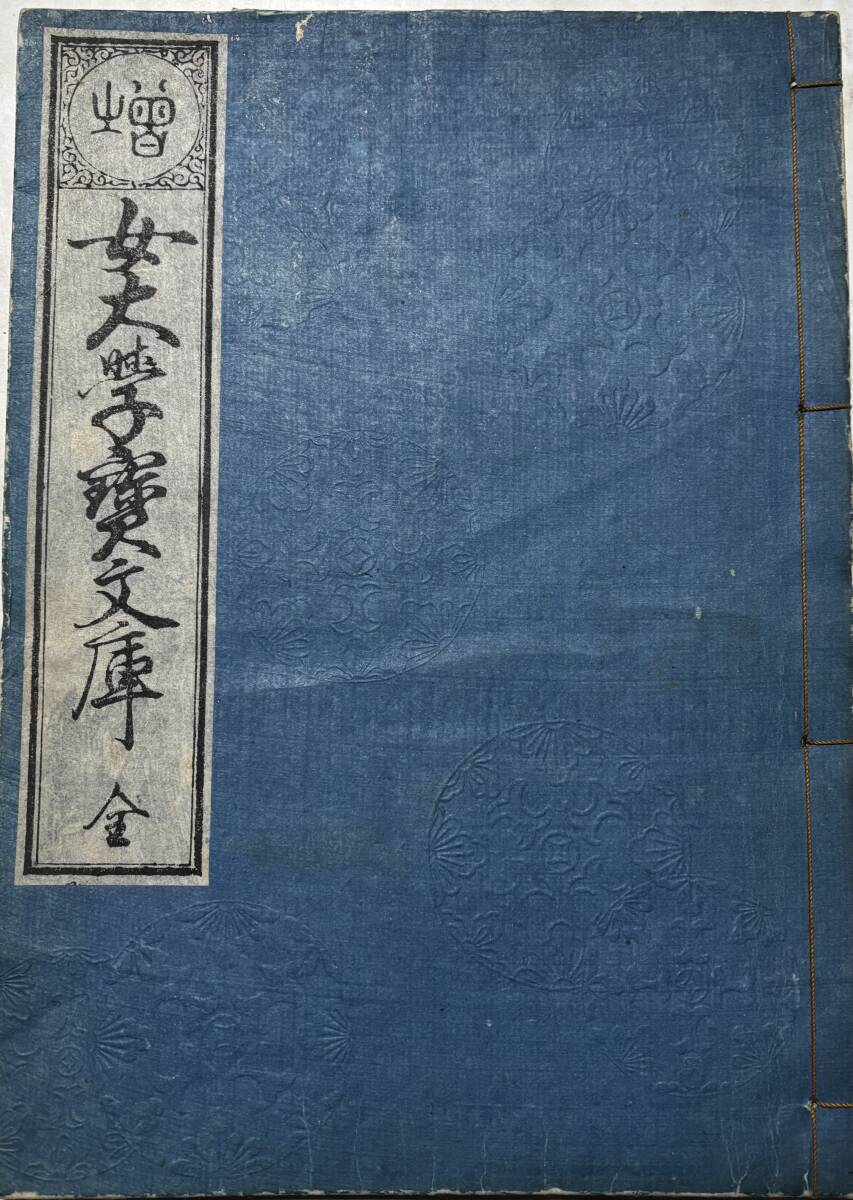 増
女大學寶文庫
全